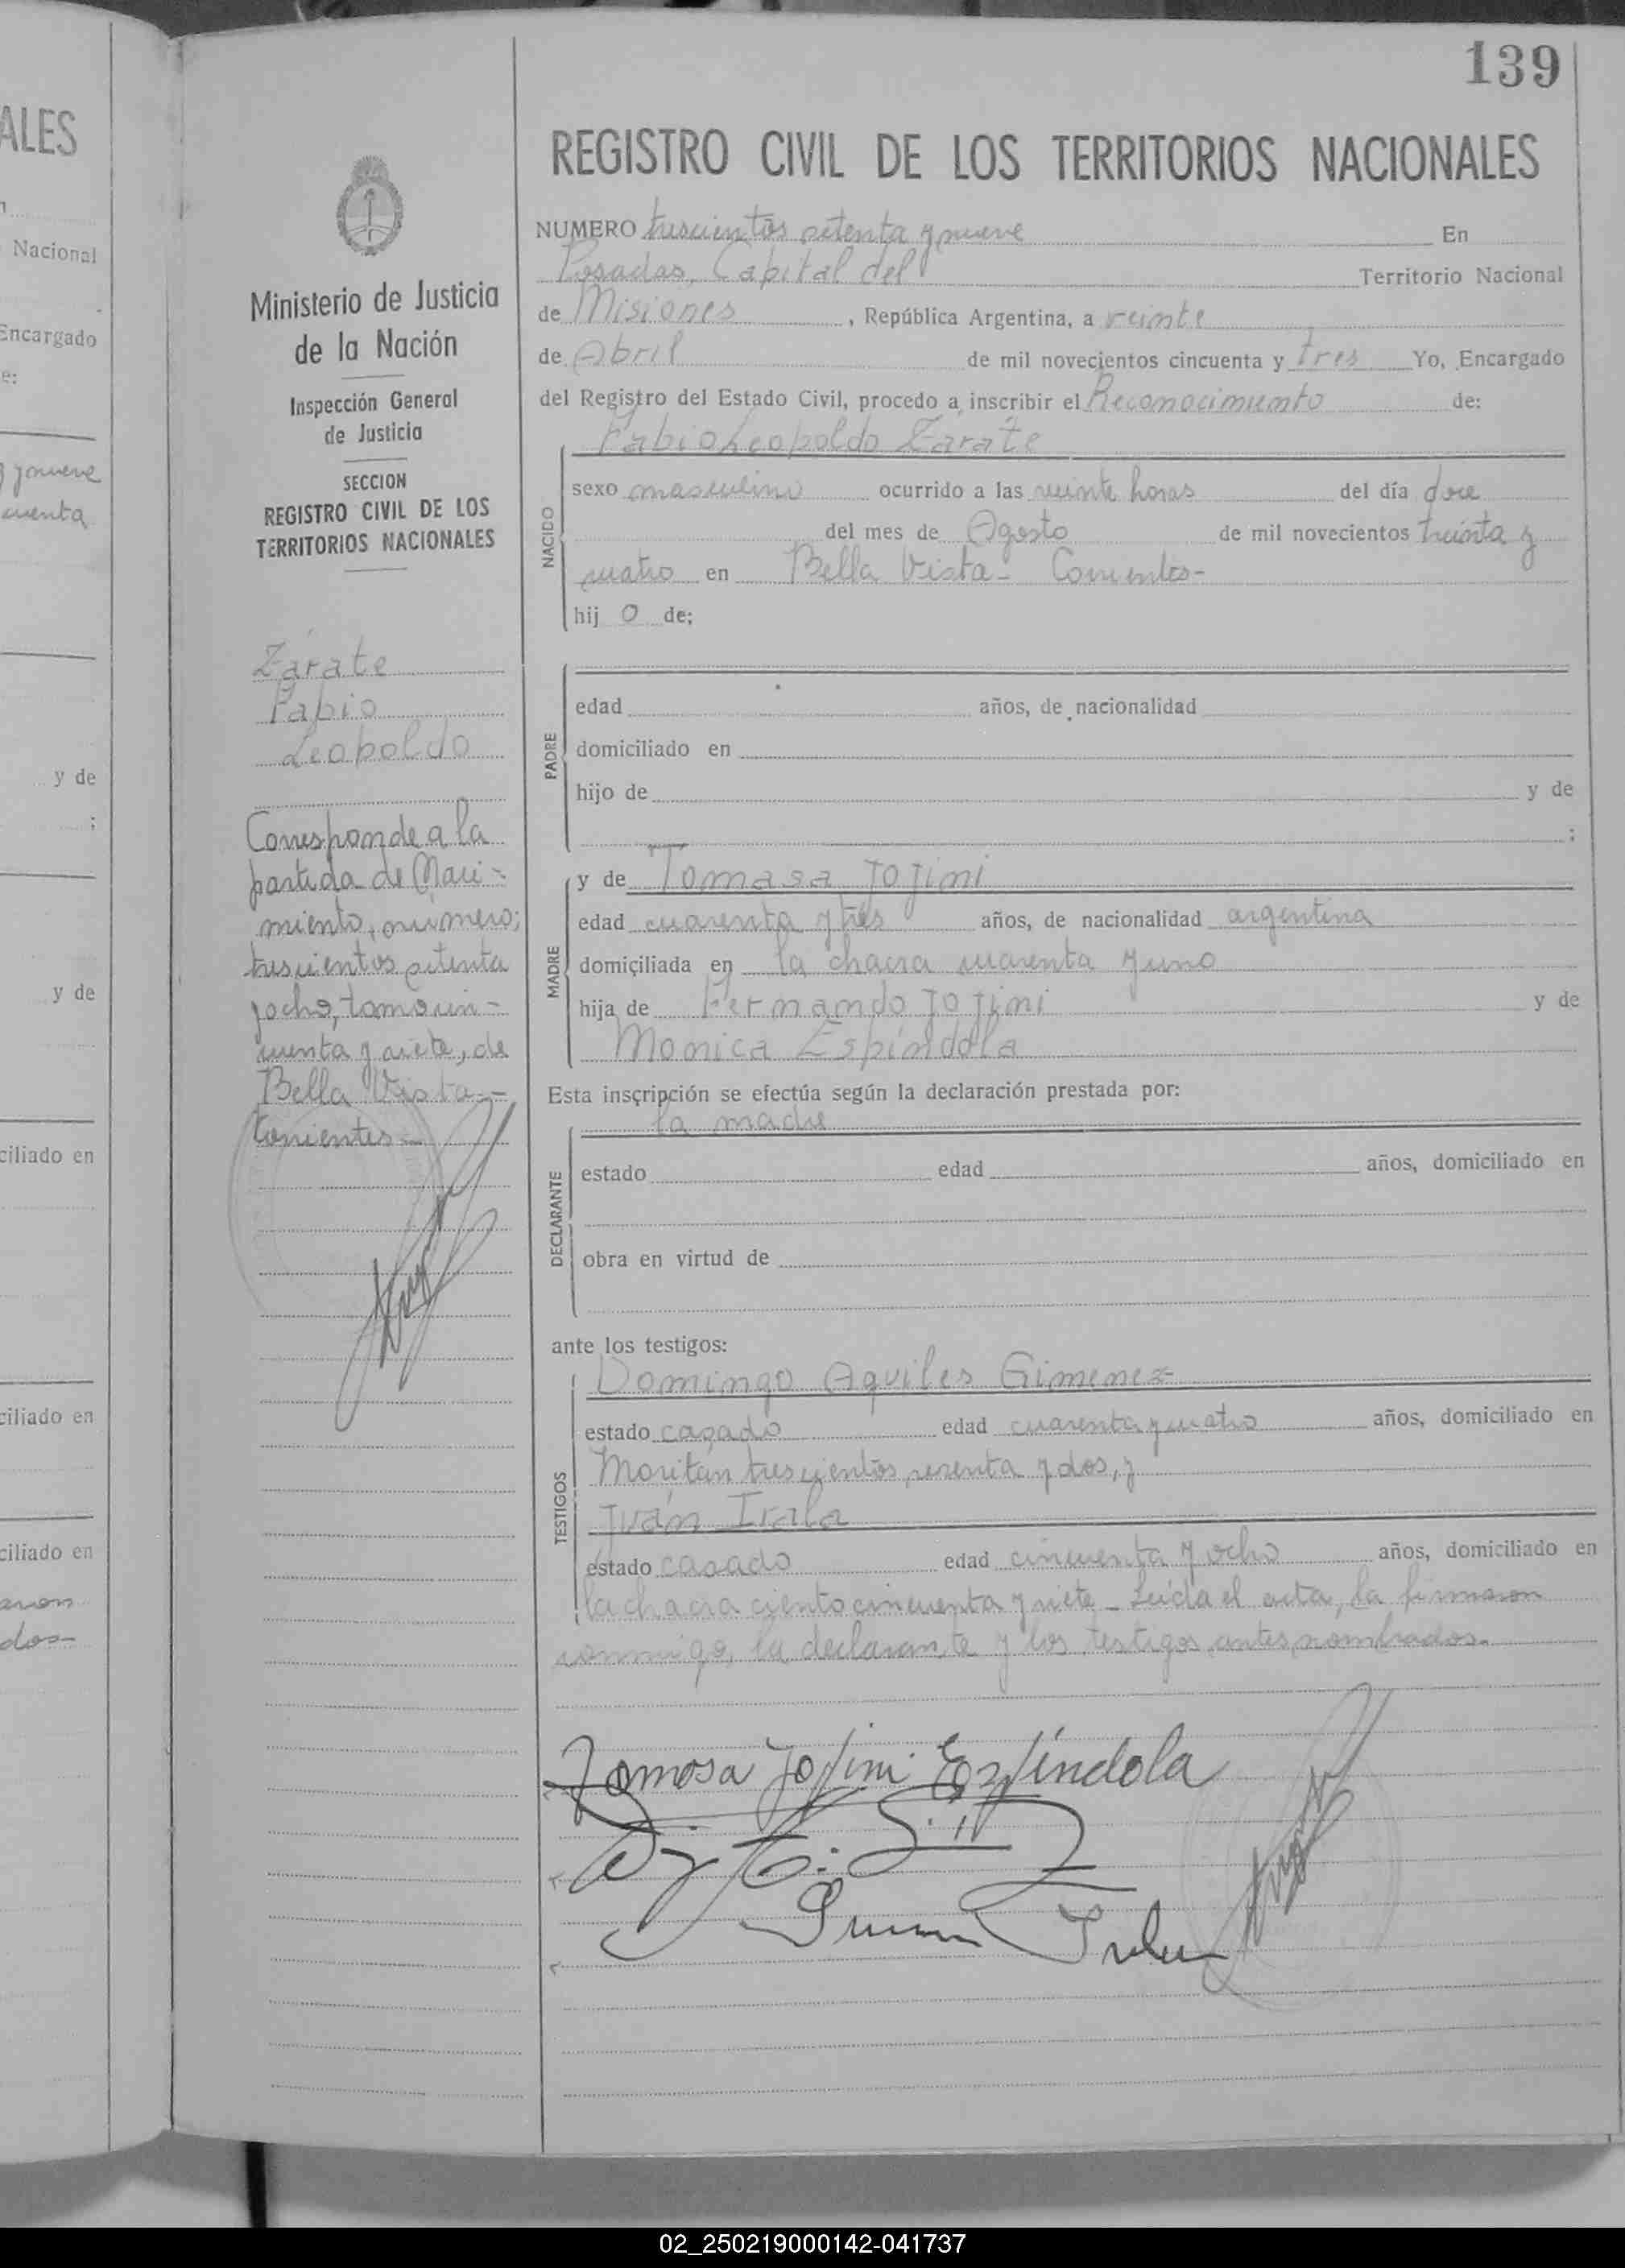 139
ALES
Nacional
Encargado
e:
y nueve
cuenta
y de
;
y de
ciliado en
ciliado en
ciliado en
aron
dos-
Ministerio de Justicia
de la Nación
Inspección General
de Justicia
SECCION
REGISTRO CIVIL DE LOS
TERRITORIOS NACIONALES
Zárate
Fabio
Leopoldo
Corresponde a la
partida de Naci-
miento, número;
trescientos setenta
y ocho, tomo cin-
cuenta y siete, de
Bella Vista-
Corrientes-
REGISTRO CIVIL DE LOS TERRITORIOS NACIONALES
NUMERO trescientos setenta y nueve En
Posadas, Capital del Territorio Nacional
de Misiones, República Argentina, a veinte
de Abril de mil novecientos cincuenta y tres Yo, Encargado
del Registro del Estado Civil, procedo a inscribir el Reconocimiento de:
Fabio Leopoldo Zárate
NACIDO
sexo masculino ocurrido a las veinte horas del día doce
del mes de Agosto de mil novecientos treinta y
cuatro en Bella Vista- Corrientes-
hij o de;
PADRE
edad años, de nacionalidad
domiciliado en
hijo de y de
;
MADRE
y de Tomasa Jojini
edad cuarenta y tres años, de nacionalidad argentina
domiciliada en la chacra cuarenta y uno
hija de Fernando Jojini y de
Monica Espíndola
Esta inscripción se efectúa según la declaración prestada por:
la madre
DECLARANTE
estado edad años, domiciliado en
obra en virtud de
ante los testigos:
TESTIGOS
Domingo Aquiles Gimenez
estado casado edad cuarenta y cuatro años, domiciliado en
Moritán trescientos sesenta y dos, y
Juán Irala
estado casado edad cincuenta y ocho años, domiciliado en
la chacra ciento cincuenta y siete- Leída el acta, la firmaron
conmigo, la declarante y los testigos antes nombrados.
Tomasa Jojini Ezpíndola
Juan Irala
02_250219000142-041737